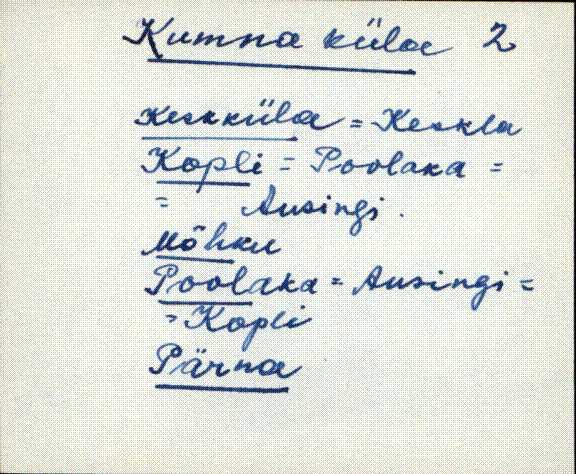 Kumna küla 2
Keskküla = Keskla
Kopli = Poolaka =
= Ausingi.
Mõhku
Poolaka = Ausingi =
= Kopli
Pärna